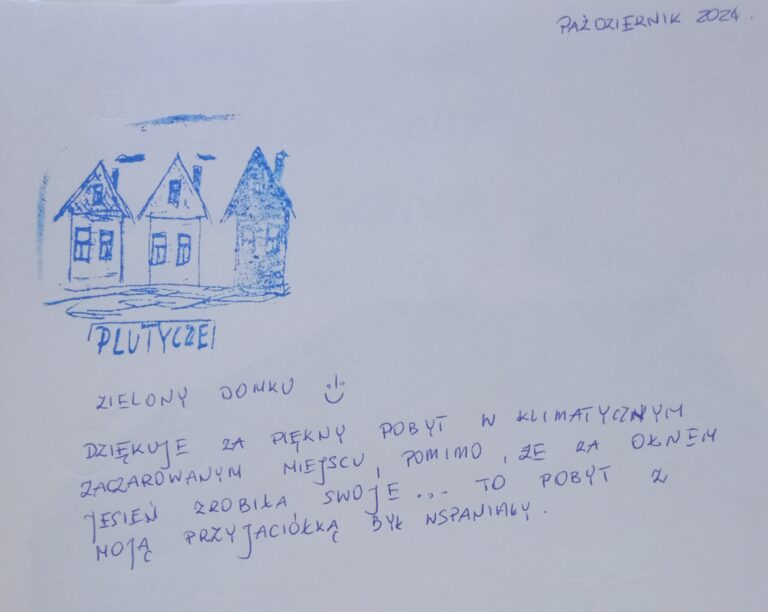 PAŹDZIERNIK 2024.
PLUTYCZE
ZIELONY DOMKU
DZIĘKUJE ZA PIĘKNY POBYT W KLIMATYCZNYM
ZACZAROWANYM MIEJSCU, POMIMO, ŻE ZA OKNEM
JESIEŃ ZROBIŁA SWOJE... TO POBYT Z
MOJĄ PRZYJACIÓŁKĄ BYŁ WSPANIAŁY.